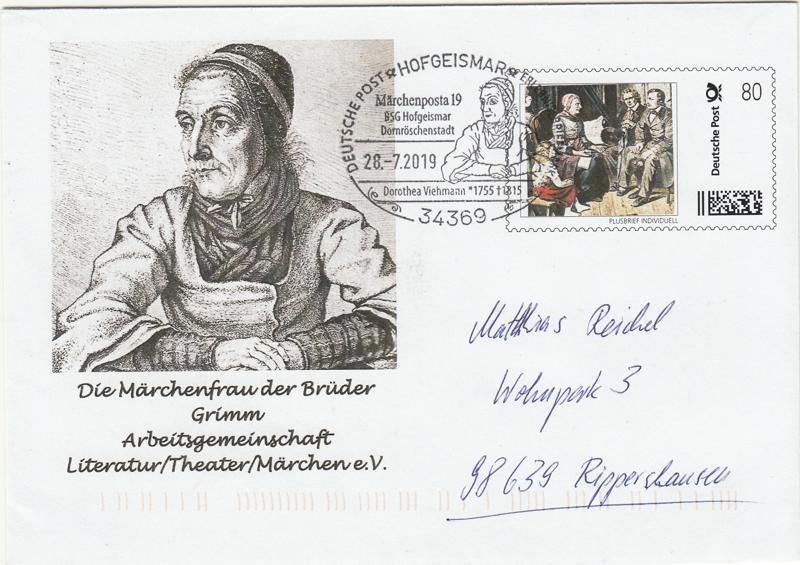 DEUTSCHE POST HOFGEISMAR
Märchenposta 19
BSG Hofgeismar
Dornröschenstadt
28.-7.2019
Dorothea Viehmann *1755 †1815
34369
Deutsche Post
80
PLUSBRIEF INDIVIDUELL
Die Märchenfrau der Brüder
Grimm
Arbeitsgemeinschaft
Literatur/Theater/Märchen e.V.
Matthias Reichel
Wohnpark 3
98639 Rippershausen